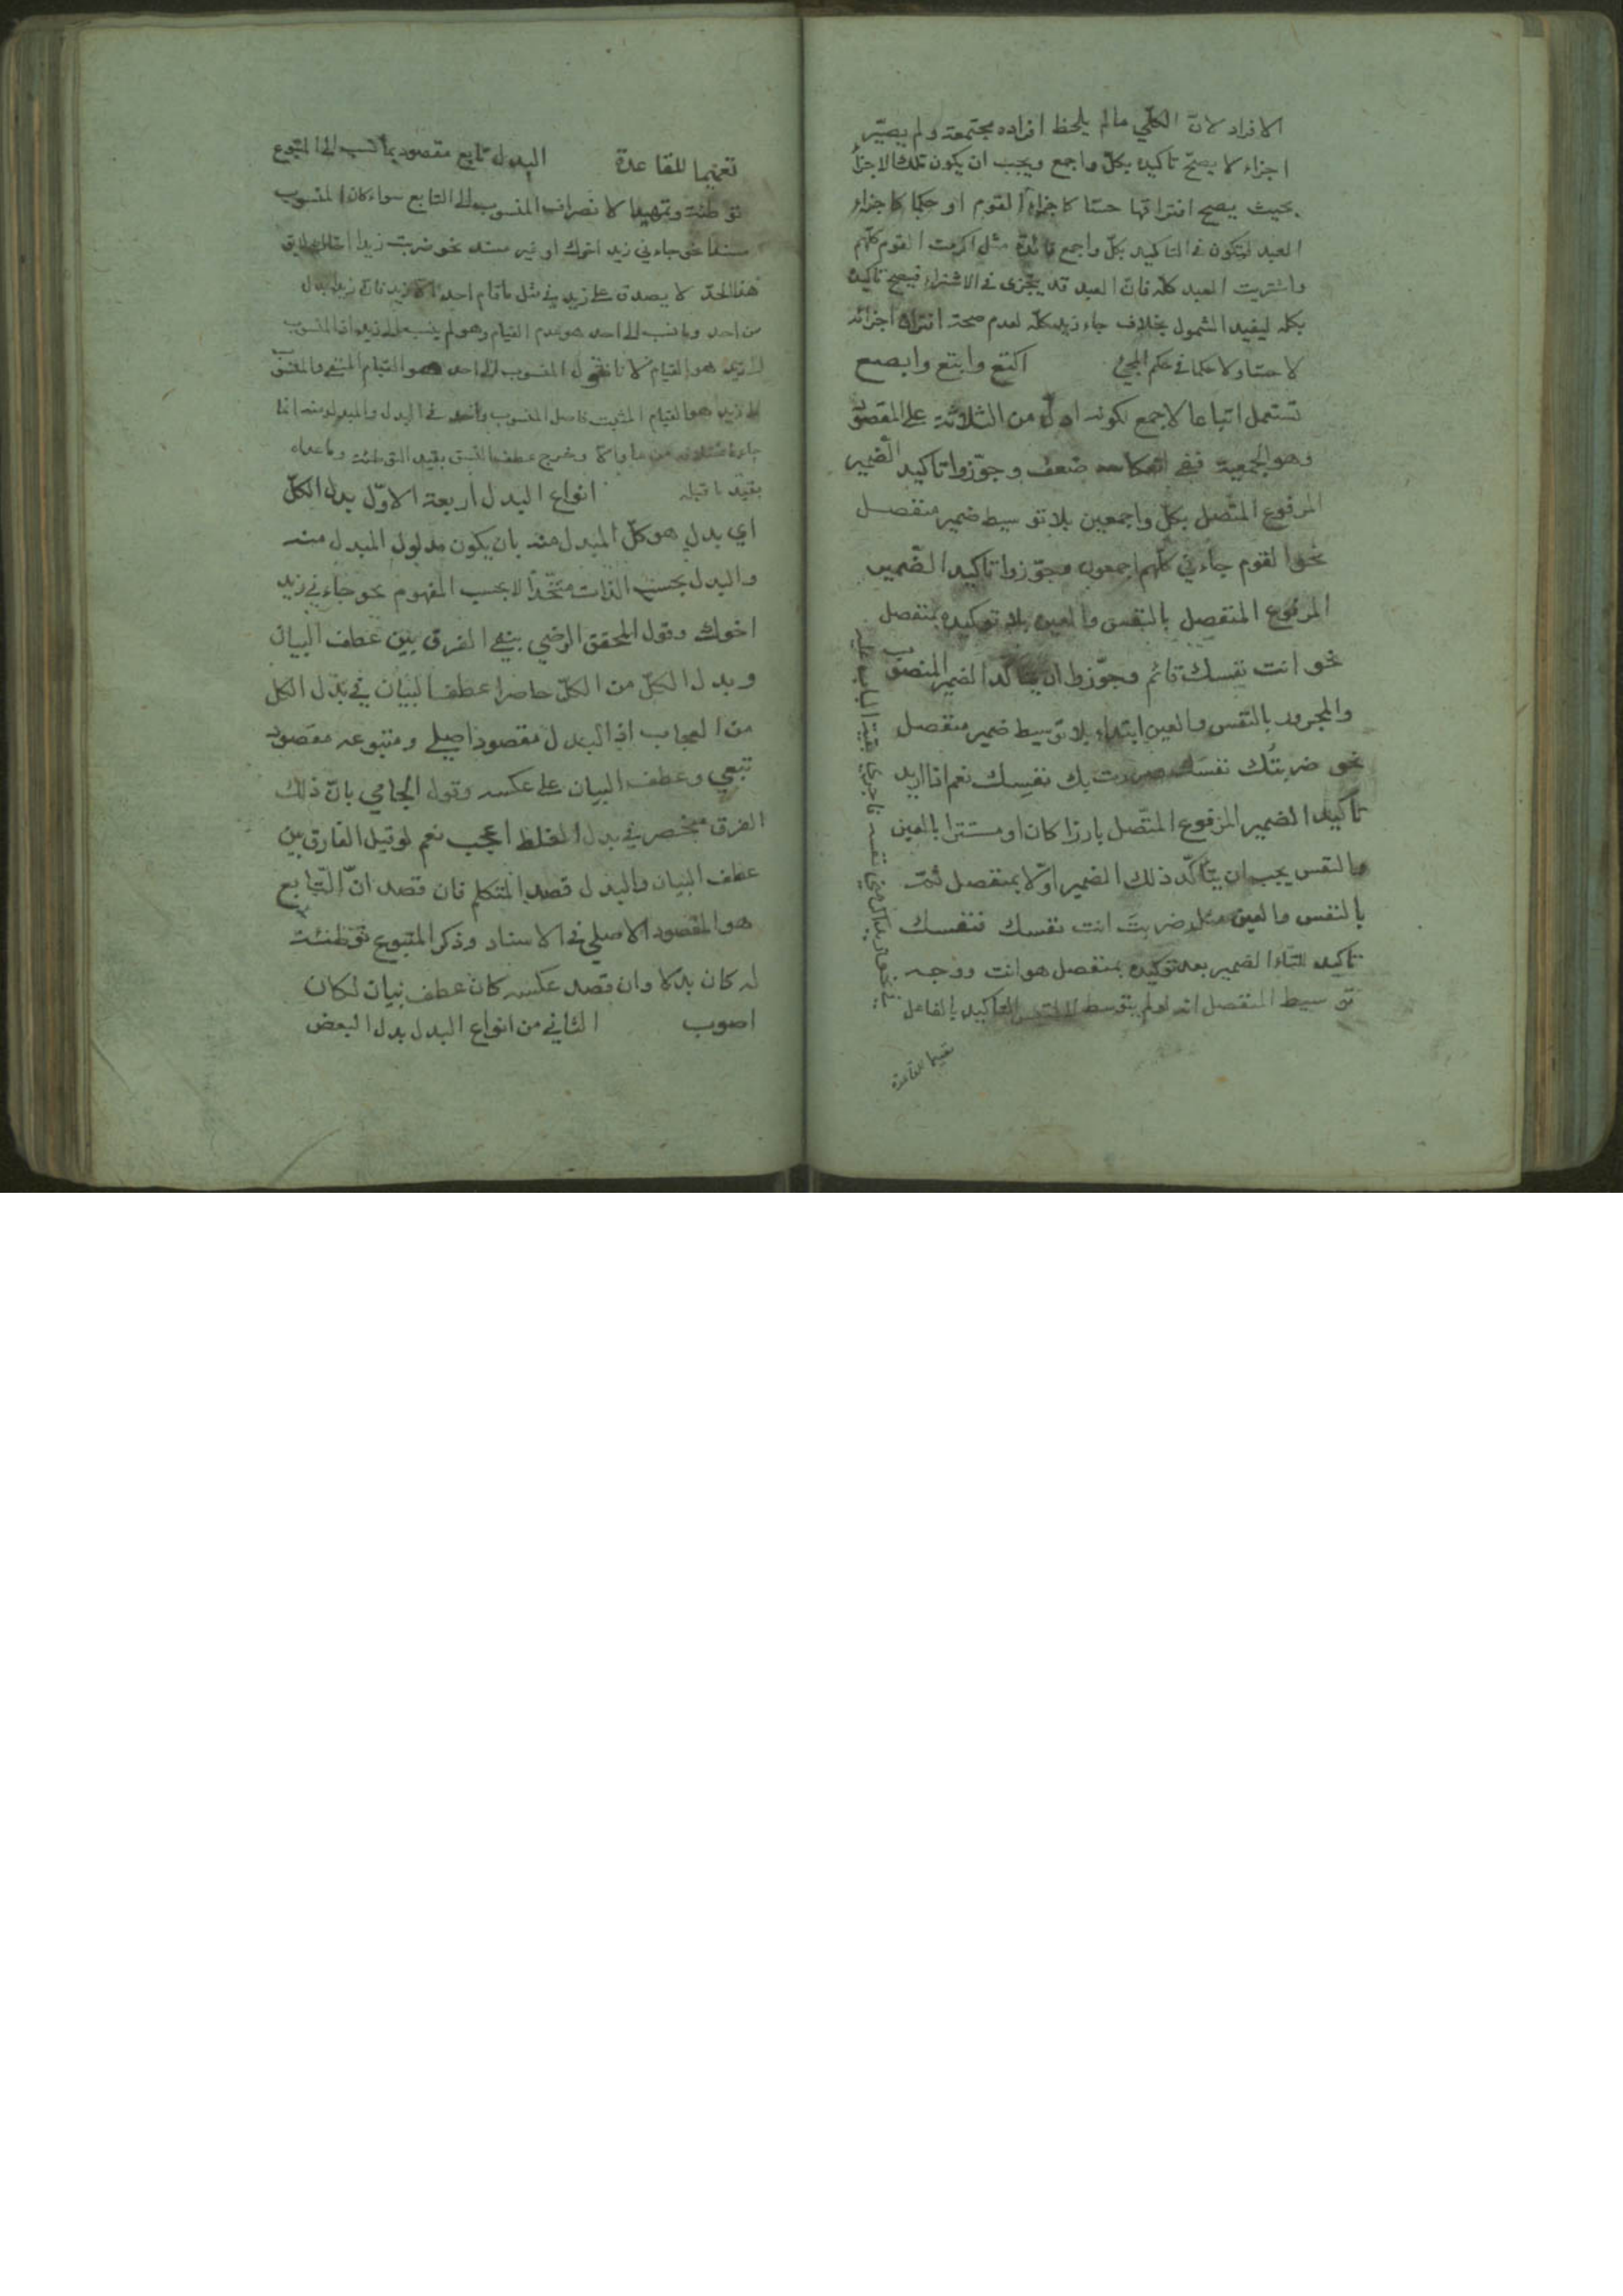 الافراد لانّ الكلّي مالم يلحظ افراده مجتمعة ولم يصيّر
اجزاء لا يصحّ تاكيده بكلّ واجمع ويجب ان يكون تلك الاجزأ
بحيث يصح افتراقها حسّا كاجزاء القوم او حكما كاجزاء
العبد ليكون في التاكيد بكلّ واجمع فائدة مثل اكرمت القوم كلّهم
واشتريت العبد كلّه فانّ العبد قد يتجزى في الاشتراء فيصح تاكيده
بكلّه ليفيد الشمول بخلاف جاء زيد كلّه لعدم صحة افتراق اجزائه
لا حسّا ولا حكما في حكم المجئ اكتع وابتع وابصع
تستعمل اتباعا لاجمع لكونه ادلّ من الثلاثة على المقصود
وهو الجمعية ففي ضعف وجوّزوا تاكيد الضمير
المرفوع المتّصل بكلّ واجمعين بلا توسيط ضمير منفصل
نحو القوم جاءني كلّهم اجمعون وجوّزوا تاكيد الضّمير
المرفوع المنفصل بالنفس والعين بلا توكيده بمنفصل
نحو انت نفسك قائم وجوّزوا ان يتاكّد الضمير المنصوب
والمجرور بالنّفس والعين ابتداء بلا توسيط ضمير منفصل
نحو ضربتك نفسك مررت بك نفسِك نعم اذا اريد
تاكيد الضمير المرفوع المتّصل بارزا كان او مستترا بالعين
والنفس يجب ان يتأكّد ذلك الضمير اوّلا بمنفصل ثمّ
بالنفس والعين مثل ضربتَ انت نفسك فنفسك
تاكيد للتاء الضمير بعد توكيده بمنفصل هو انت ووجه
توسيط المنفصل انه لو لم يتوسط التاكيد بالفاعل
في نحو زيد اكرمني نفسه فاجري بقية الباب عليه
تعميما للقاعدة
تعميما للقاعدة البدل تابع مقصود بما نسب الى المتبوع
توطئة وتمهيدا لانصراف المنسوب الى التابع سواء كان المنسوب
مسندا نحو جاءني زيد اخوك او غير مسند نحو ضربت زيدا اخاك
هذا الحدّ لا يصدق على زيد في مثل ما قام احد الّا زيد فانّ زيدا بدل
من احد وما نسب الى احد هو عدم القيام وهو لم ينسب الى زيد انما المنسوب
الى زيد هو القيام لانا نقول المنسوب الى احد هو القيام المنفي والمنسوب
الى زيد هو القيام المثبت فاصل المنسوب واحد في البدل والمبدل منه
وخرج عطف النسق بقيد التوطئة وما عداه
بقيد ما قبله انواع البدل اربعة الاوّل بدل الكلّ
اي بدل هو كلّ المبدل منه بان يكون مدلول المبدل منه
والبدل بحسب الذات متّحدا لا بحسب المفهوم نحو جاءني زيد
اخوك وقول المحقق الرضي بنفي الفرق بين عطف البيان
وبدل الكلّ من الكلّ حاصرا عطف البيان في بدل الكل
من العجاب اذ البدل مقصود اصلي ومتبوعه مقصود
تبعي وعطف البيان على عكسه وقول الجامي بانّ ذلك
الفرق منحصر في بدل الغلط اعجب نعم لو قيل الفارق بين
عطف البيان والبدل قصد المتكلم فان قصد انّ التابع
هو المقصود الاصلي في الاسناد وذكر المتبوع توطئة
له كان بدلا وان قصد عكسه كان عطف بيان لكان
اصوب الثاني من انواع البدل بدل البعض